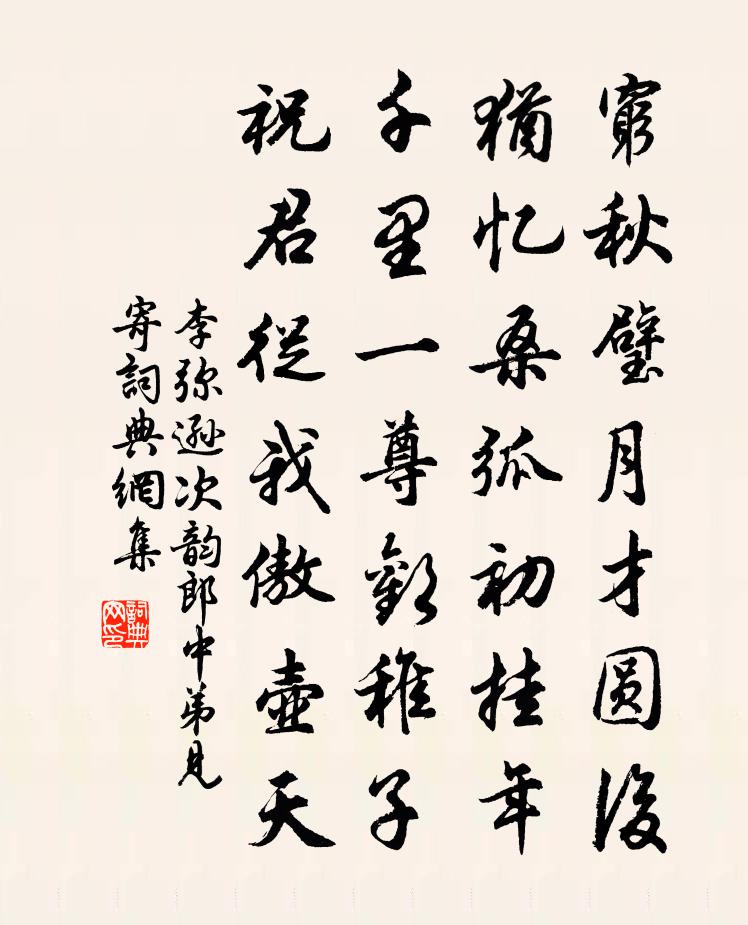 窮秋璧月才圆後
猶忆桑弧初挂年
千里一尊歡稚子
祝君從我傲壺天
李弥遜次韵郎中弟見
寄詞典網集
詞典网印